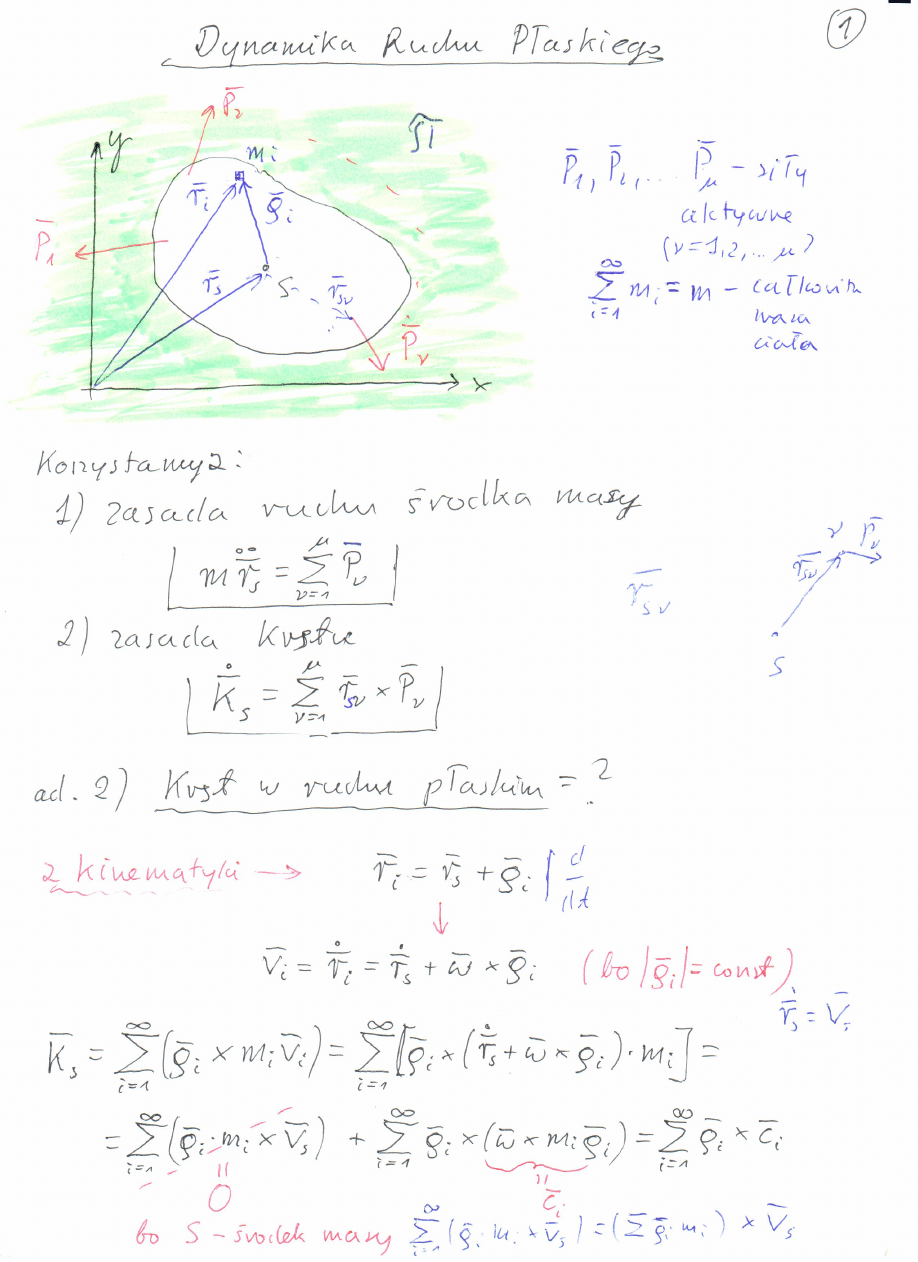 1
Dynamika Ruchu Płaskiego
y
P̄₂
π
mᵢ
r̄ᵢ
ρ̄ᵢ
P̄₁
r̄ₛ
S
r̄ₛᵥ
P̄ᵥ
x
P̄₁, P̄₂, ... P̄_μ – siły
aktywne
(ν=1,2,...μ)
∑_{i=1}^{∞} mᵢ = m – całkowita
masa
ciała
Korzystamy z:
1) zasada ruchu środka masy
m r̄̈_s = ∑_{ν=1}^{μ} P̄_ν
2) zasada Krętu
K̄̇_s = ∑_{ν=1}^{μ} r̄_{sν} × P̄_ν
r̄_{sν}
ν P̄_ν
r̄_{sν}
S
ad. 2) Kręt w ruchu płaskim = ?
z kinematyki → r̄ᵢ = r̄_s + ρ̄ᵢ | d/dt
v̄ᵢ = r̄̇ᵢ = r̄̇_s + ω̄ × ρ̄ᵢ (bo |ρ̄ᵢ| = const)
r̄̇_s = V̄_s
K̄_s = ∑_{i=1}^{∞} (ρ̄ᵢ × mᵢ v̄ᵢ) = ∑_{i=1}^{∞} [ρ̄ᵢ × (r̄̇_s + ω̄ × ρ̄ᵢ) · mᵢ] =
= ∑_{i=1}^{∞} (ρ̄ᵢ · mᵢ × V̄_s) + ∑_{i=1}^{∞} ρ̄ᵢ × (ω̄ × mᵢ ρ̄ᵢ) = ∑_{i=1}^{∞} ρ̄ᵢ × c̄ᵢ
= 0
= c̄ᵢ
bo S – środek masy ∑_{i=1}^{∞} (ρ̄ᵢ mᵢ × V̄_s) = (∑ ρ̄ᵢ mᵢ) × V̄_s